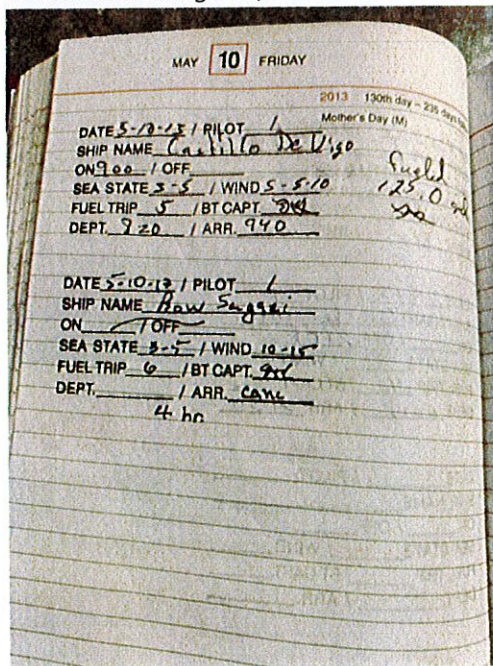 MAY 10 FRIDAY
2013 130th day – 235 days
Mother's Day (M)
DATE 5-10-13 / PILOT 1
SHIP NAME Castillo De Vigo
ON 900 / OFF
SEA STATE 3-5 / WIND S-5-10
FUEL TRIP 5 / BT CAPT.
DEPT. 920 / ARR. 940
Fueled
125.0
DATE 5-10-13 / PILOT 1
SHIP NAME Bow
ON / OFF
SEA STATE 3-5 / WIND 10-15
FUEL TRIP 6 / BT CAPT.
DEPT. / ARR. canc
4 hr